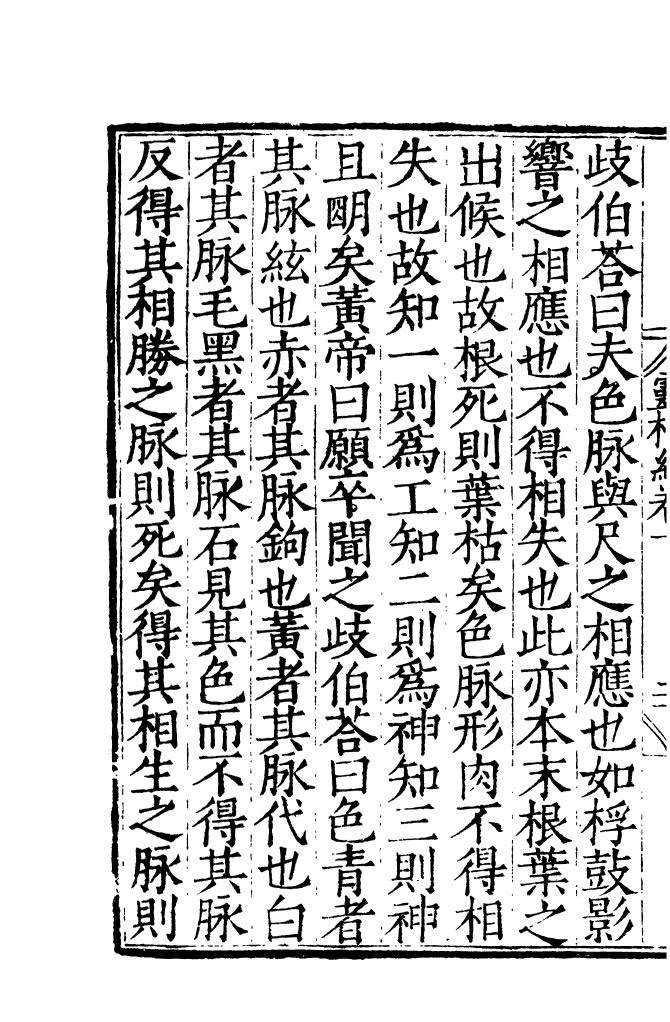 歧伯荅曰夫色脉與尺之相應也如桴鼓影
響之相應也不得相失也此亦本末根葉之
出候也故根死則葉枯矣色脉形肉不得相
失也故知一則爲工知二則爲神知三則神
且明矣黃帝曰願卒聞之歧伯荅曰色青者
其脉絃也赤者其脉鉤也黃者其脉代也白
者其脉毛黑者其脉石見其色而不得其脉
反得其相勝之脉則死矣得其相生之脉則